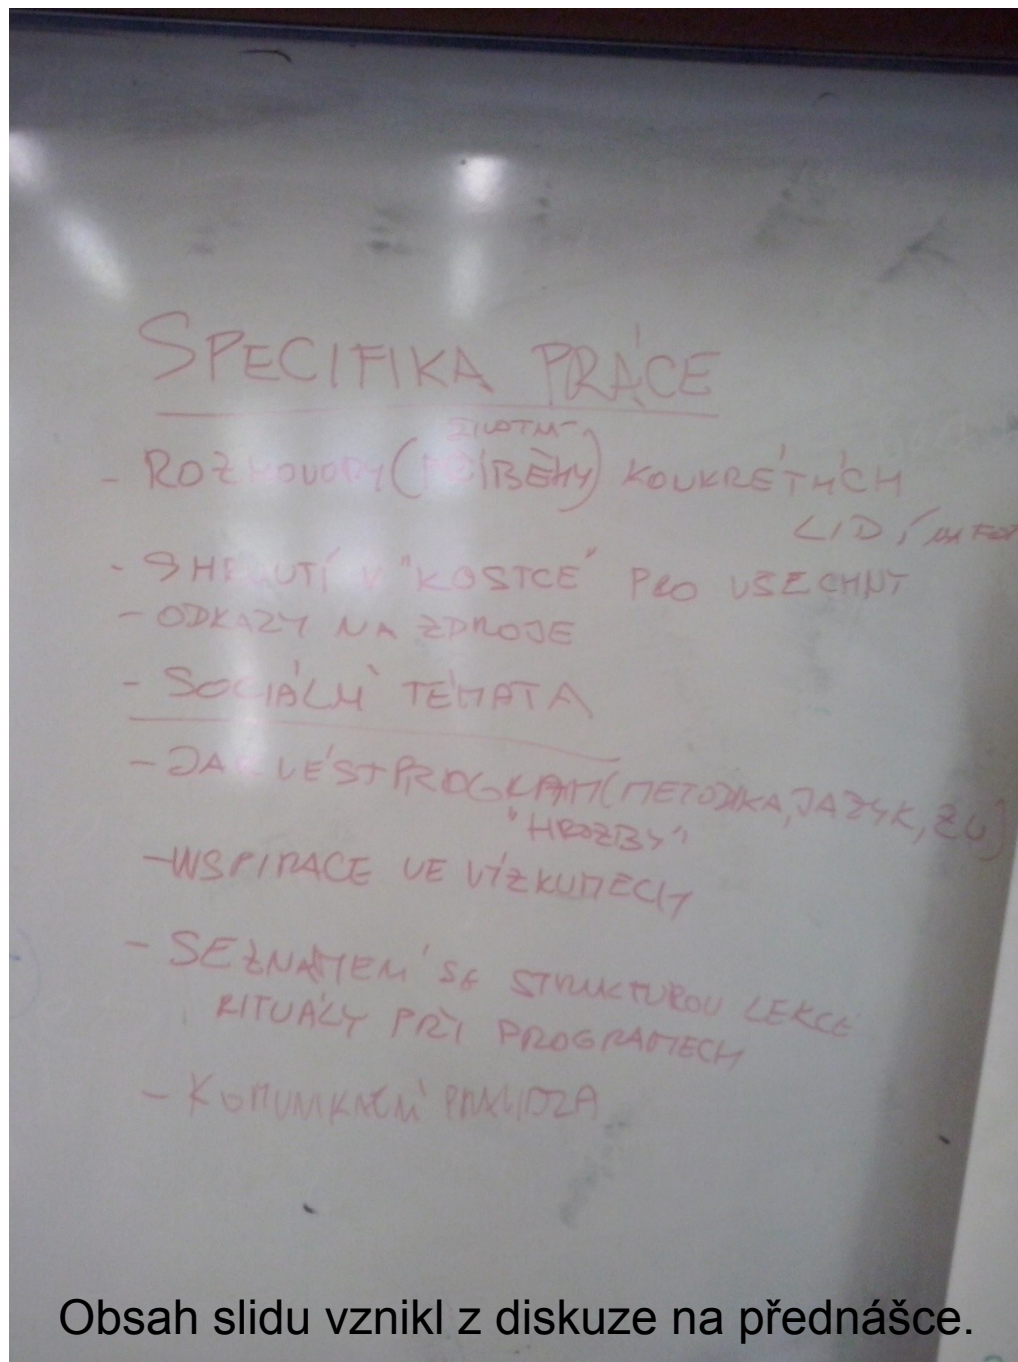 SPECIFIKA PRÁCE
ŽIVOTNÍ
- ROZHOVORY (PŘÍBĚHY) KONKRÉTNÍCH
LIDÍ
- SHRNUTÍ V "KOSTCE" PRO VŠECHNY
- ODKAZY NA ZDROJE
- SOCIÁLNÍ TÉMATA
- JAK VÉST PROGRAM (METODIKA, JAZYK,
"HROZBY"
- INSPIRACE VE VÝZKUMECH
- SEZNÁMENÍ SE STRUKTUROU LEKCE
RITUÁLY PŘI PROGRAMECH
- KOMUNIKAČNÍ PRAVIDLA
Obsah slidu vznikl z diskuze na přednášce.